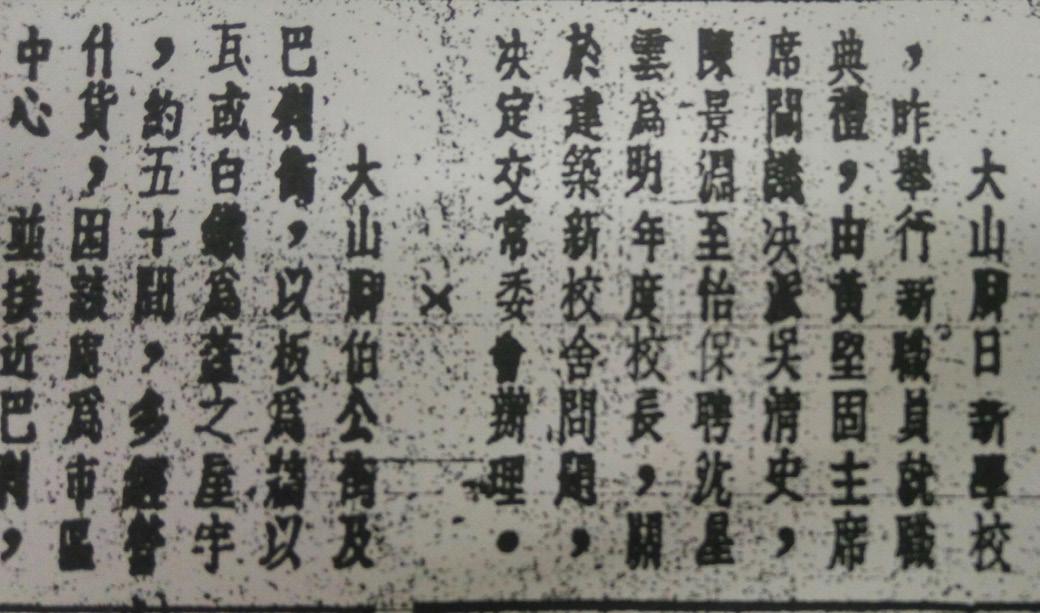 大山脚日新學校
，昨舉行新職員就職
典禮，由黃堅固主席
席間議决派吳清史，
陳景淵至怡保聘沈星
雲爲明年度校長，關
於建築新校舍問題，
决定交常委會辦理．
×
大山脚伯公街及
巴刹街，以板爲牆以
瓦或白鐵爲蓋之屋宇
，約五十間，多經營
什貨，因該處爲市區
中心 並接近巴刹，